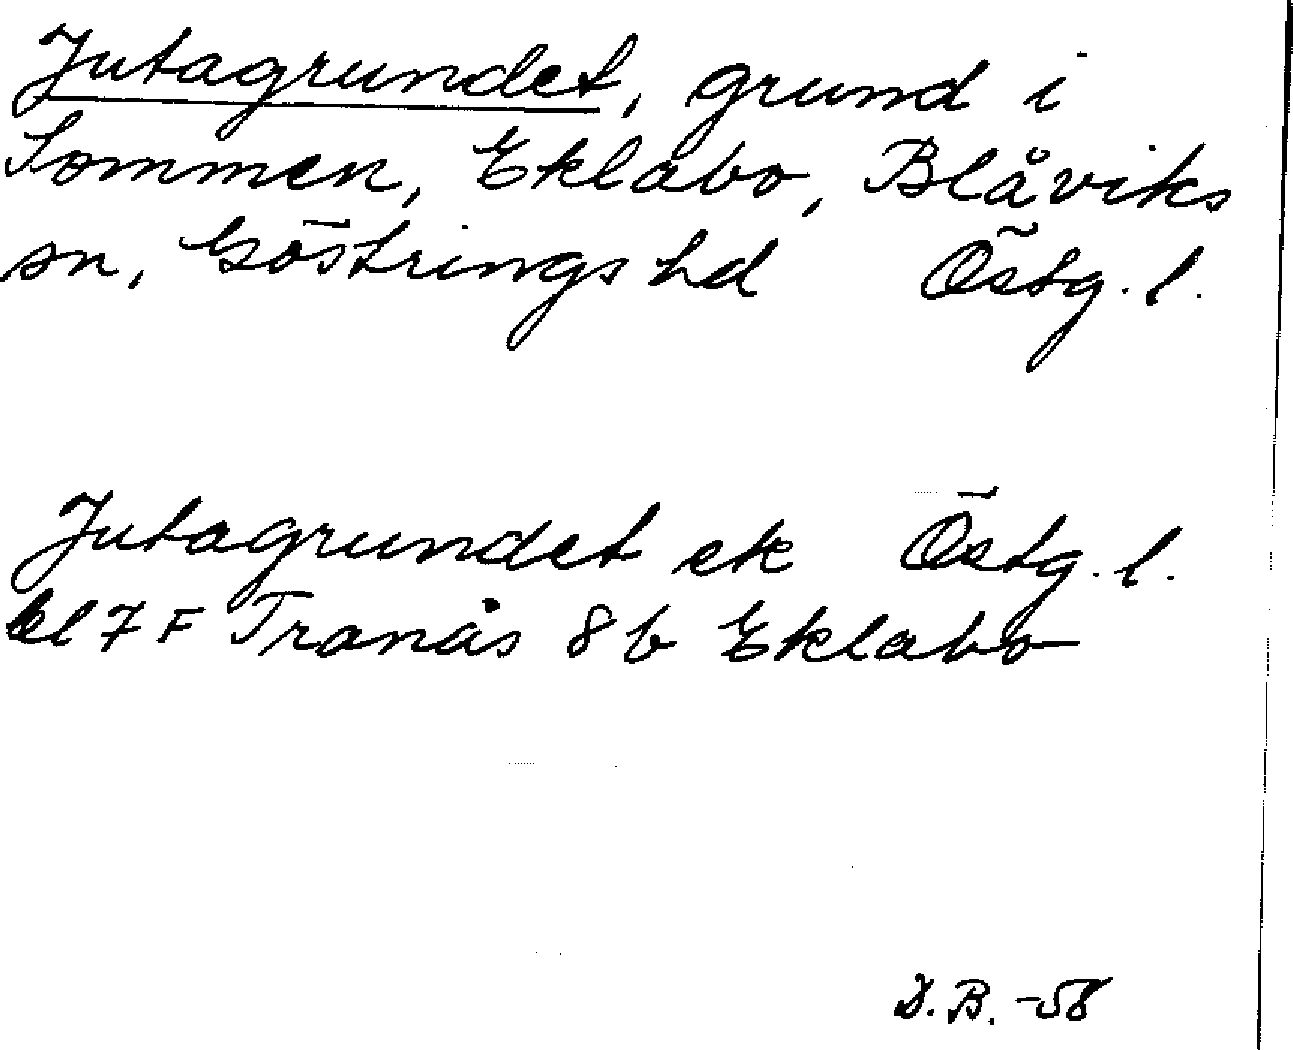 Jutagrundet, grund i
Sommen, Eklabo, Blåviks
sn, Göstrings hd Östg. l.
Jutagrundet ek Östg. l.
bl 7 F Tranås 8 b Eklabo
D. B. -58